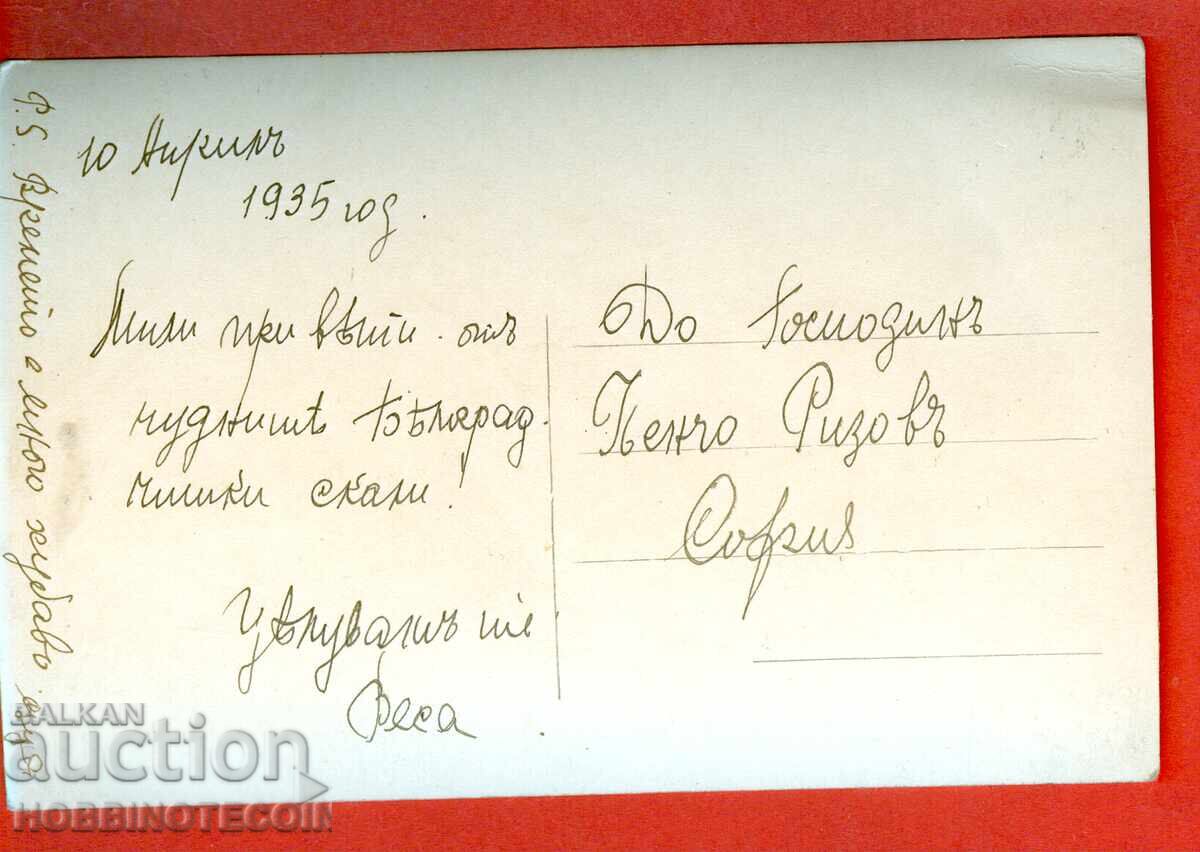 10 Априлъ
1935 год.
Мили привѣти отъ
чуднитѣ Бѣлоград-
чишки скали!
Цѣлувамъ те
Веса.
До Господинъ
Пенчо Ризовъ
София
P.S. Времето е много хубаво
BALKAN
auction
HOBBINOTECOIN